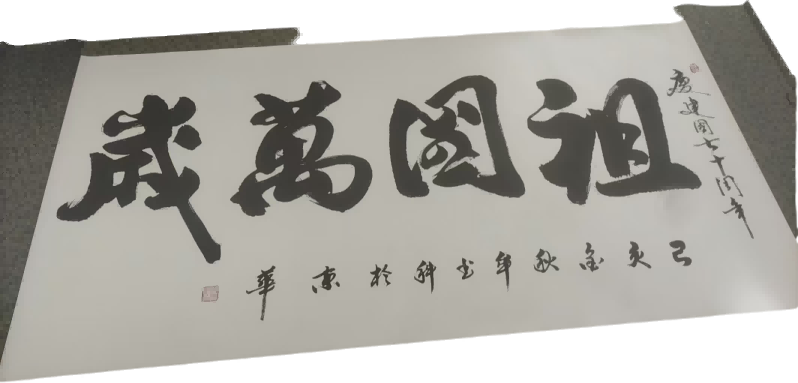 慶建國七十周年
祖國萬歲
己亥金秋年书科於京華